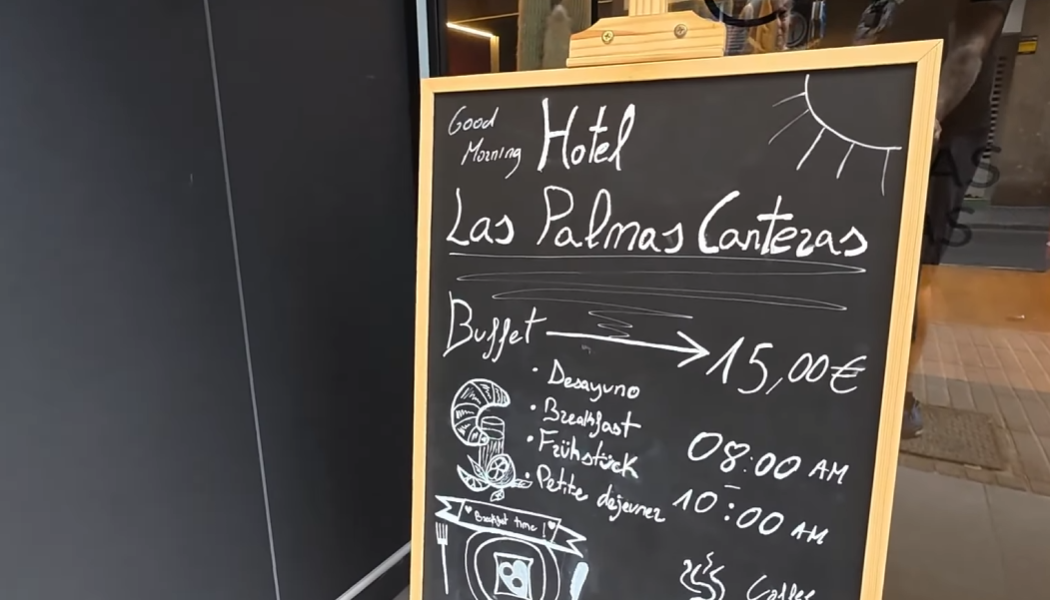 Good
Morning
Hotel
Las Palmas Canteras
Buffet → 15,00€
• Desayuno
• Breakfast
• Frühstück
• Petite dejeuner
08:00 AM
–
10:00 AM
Breakfast time!
Coffee